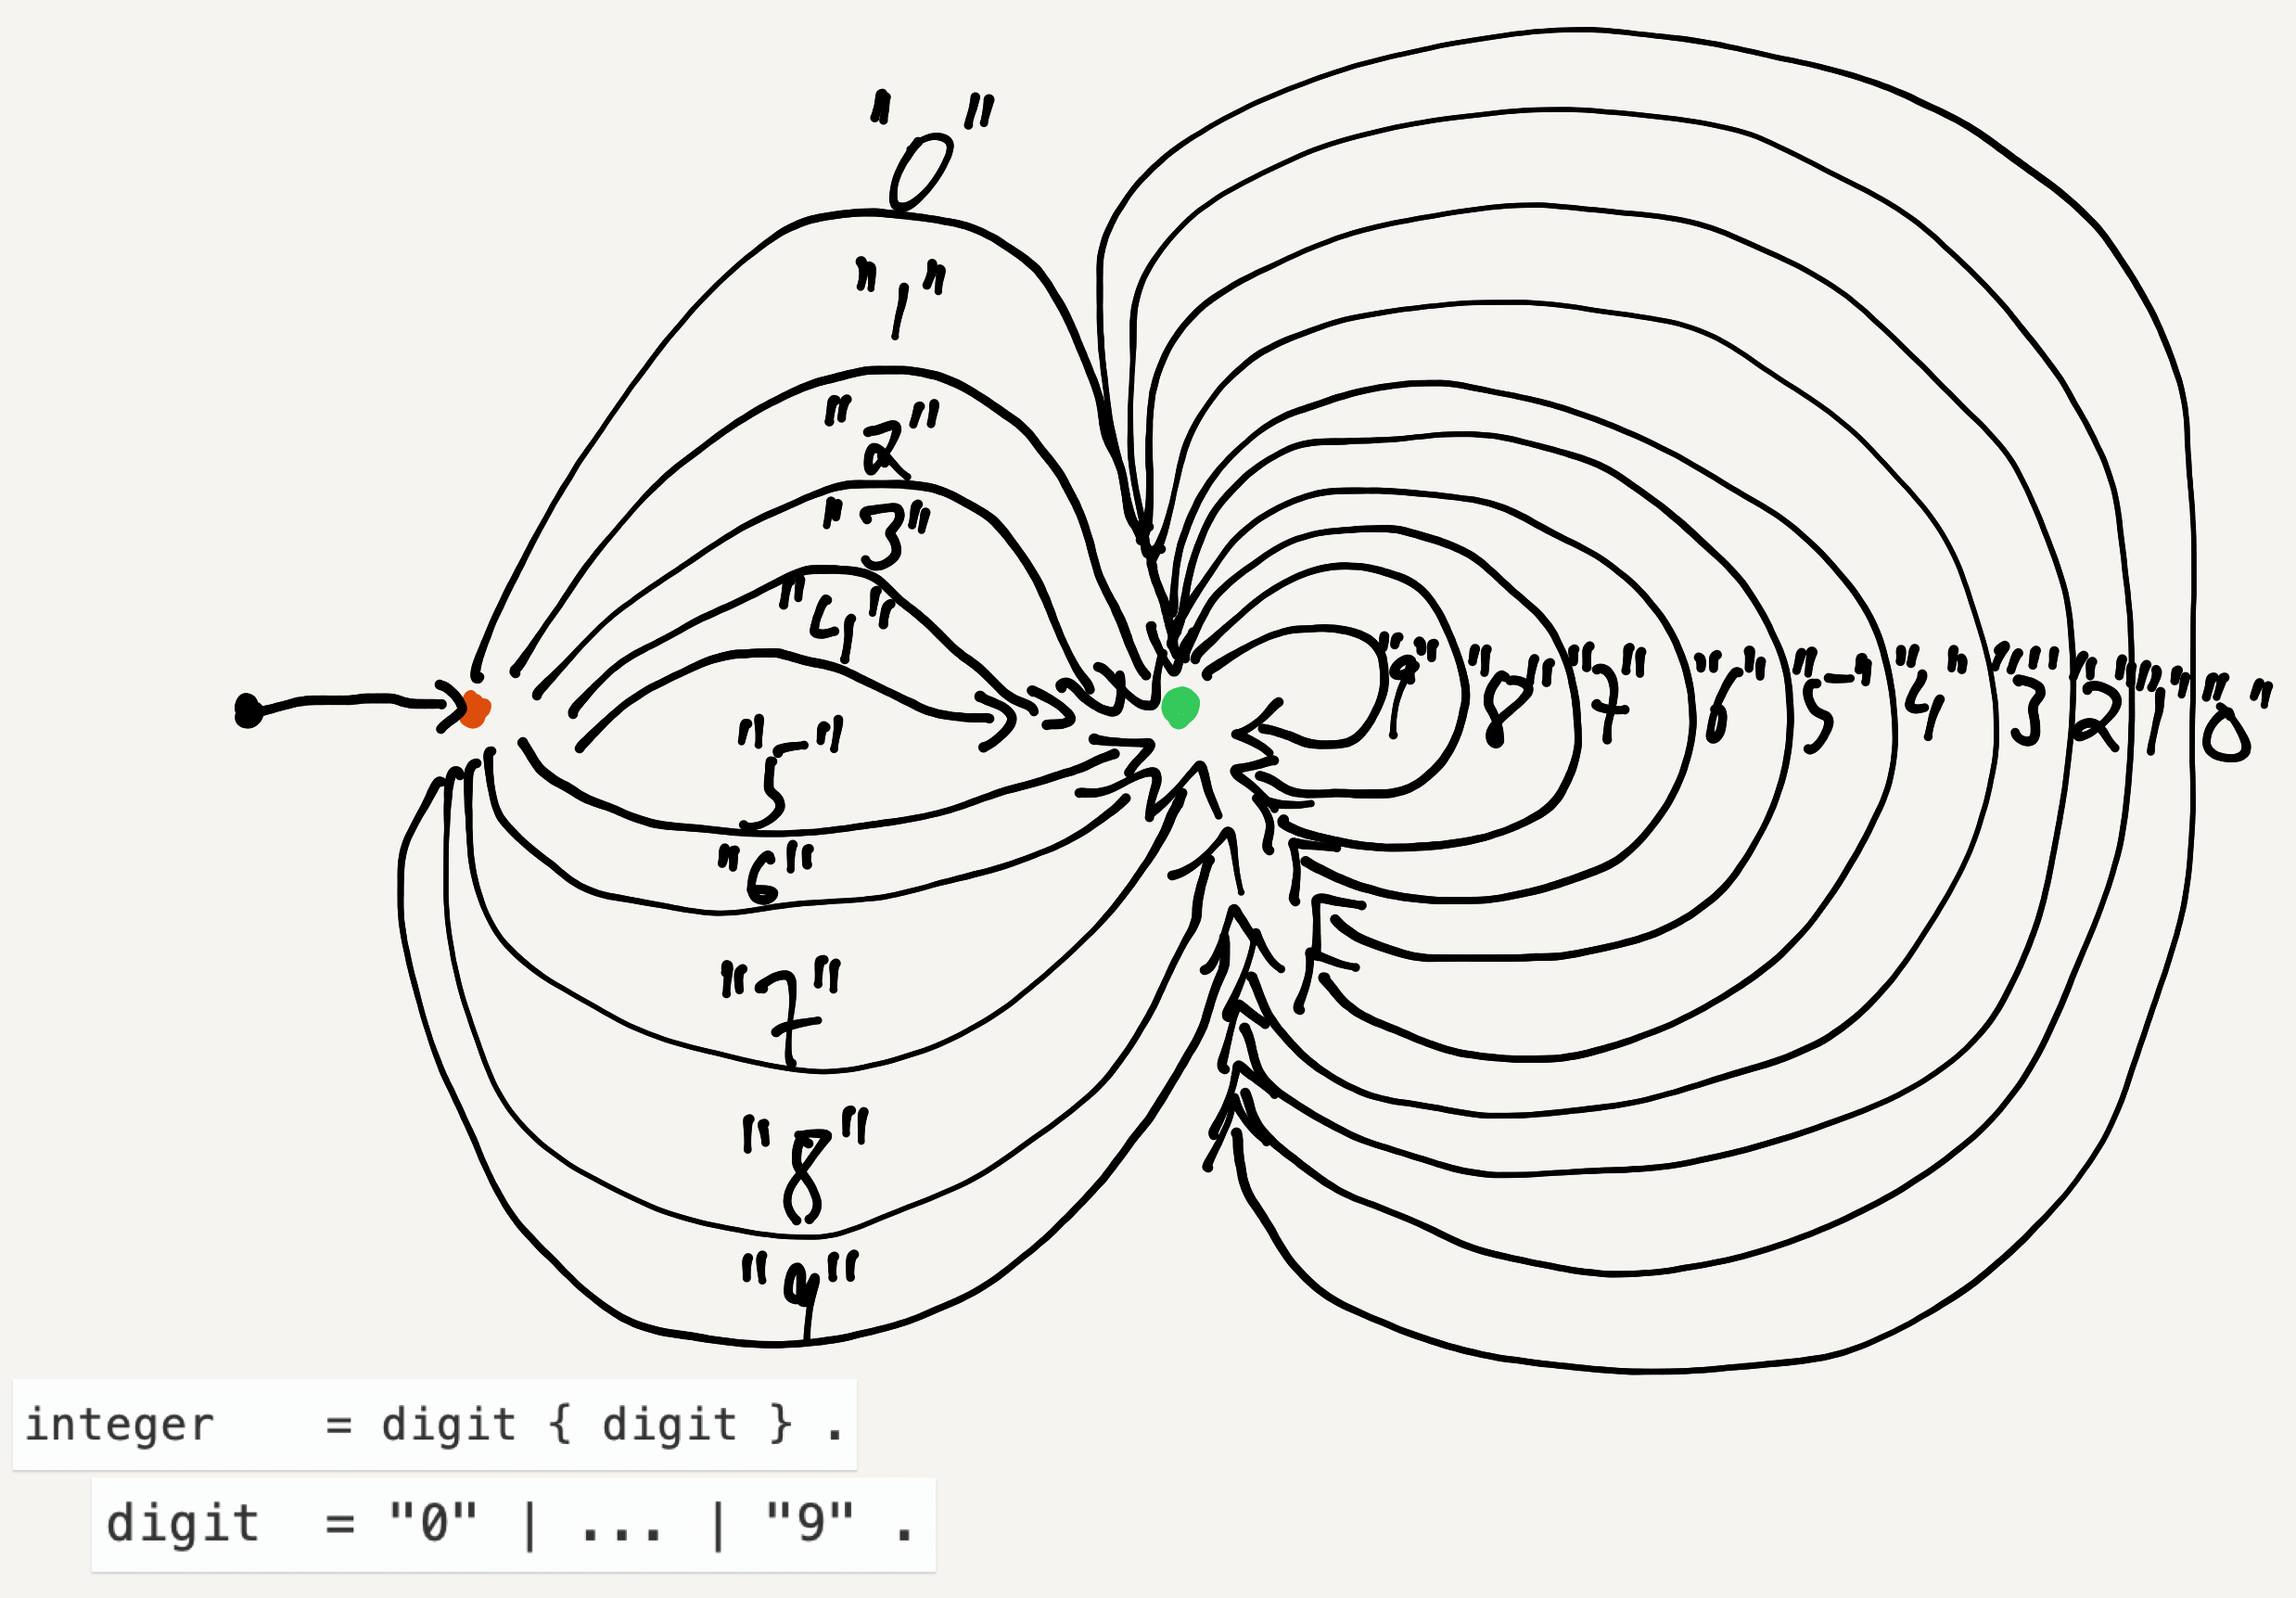 "0"
"1"
"2"
"3"
"4"
"5"
"6"
"7"
"8"
"9"
"9" "8" "7" "6" "5" "4" "3" "2" "1" "0"
integer = digit { digit } .
digit = "0" | ... | "9" .